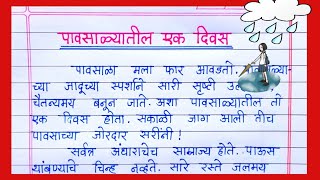 पावसाळ्यातील एक दिवस
पावसाळा मला फार आवडतो.
च्या जादूच्या स्पर्शाने सारी सृष्टी
चैतन्यमय बनून जाते. अशा पावसाळ्यातील तो
एक दिवस होता. सकाळी जाग आली तीच
पावसाच्या जोरदार सरींनी!
सर्वत्र अंधाराचेच साम्राज्य होते. पाऊस
थांबण्याचे चिन्ह नव्हते. सारे रस्ते जलमय